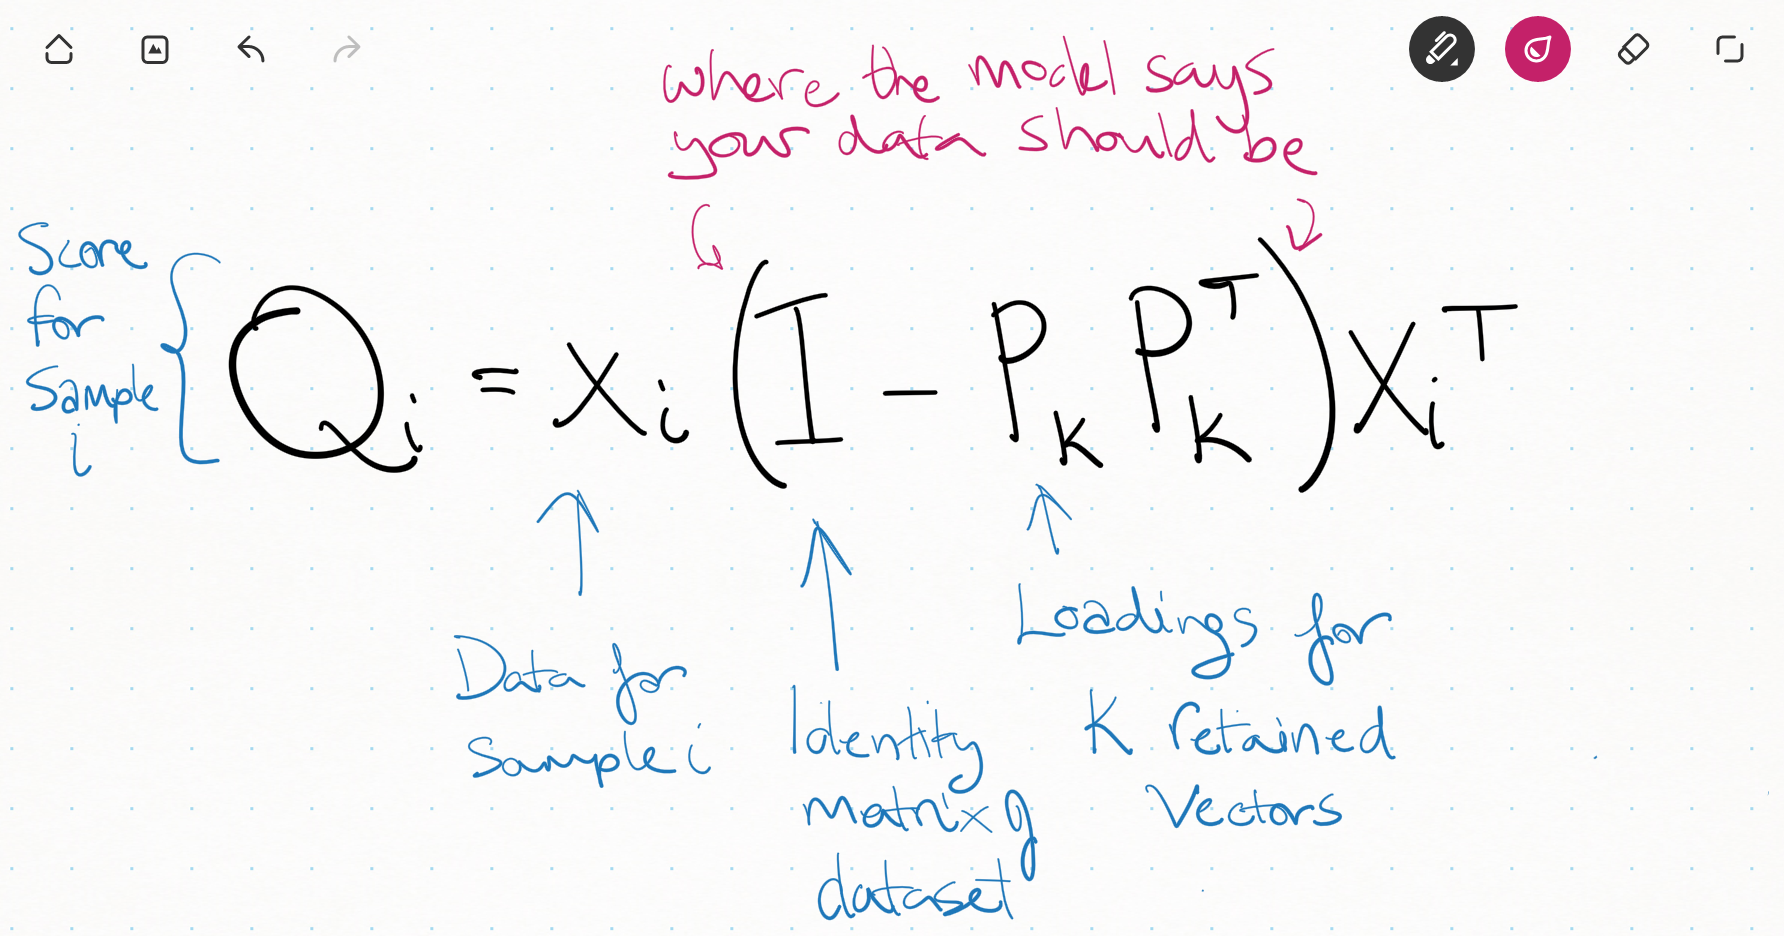 where the model says
your data should be
Score
for
Sample
i
Qi = xi (I - PK PKT) XiT
Data for
Sample i
Identity
matrix of
dataset
Loadings for
K retained
Vectors